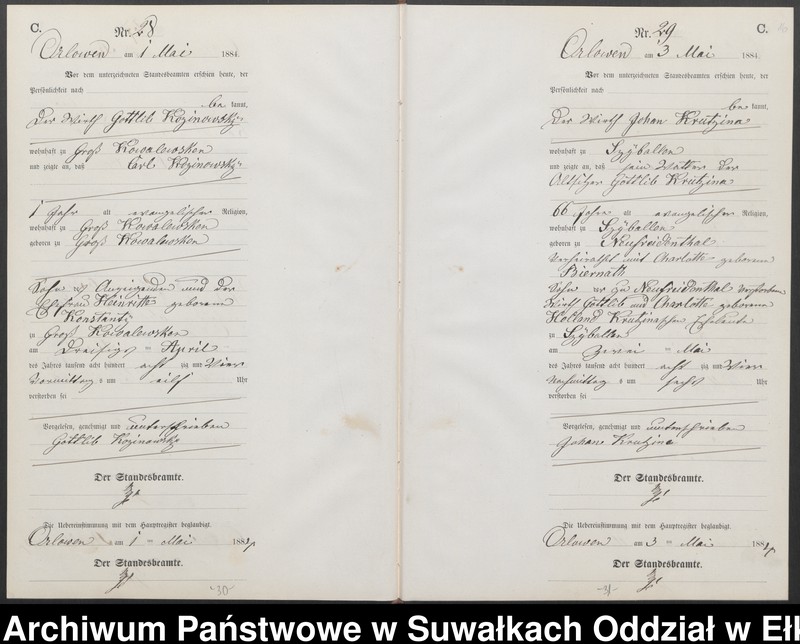 C.
Nr. 28
Orlowen am 1 Mai 1884.
Vor dem unterzeichneten Standesbeamten erschien heute, der
Persönlichkeit nach
be kannt,
der Wirth Gottlib Kozinowsky
wohnhaft zu Groß Kowalewsken
und zeigte an, daß Carl Kozinowsky
1 Jahr alt evangelischer Religion,
wohnhaft zu Groß Kowalewsken
geboren zu Groß Kowalewsken
Sohn des Anzeigenden und der
Ehefrau Heinritte geborene
Konstanti
zu Groß Kowalewsken
am Dreißigs = April
des Jahres tausend acht hundert acht zig und Vier
Vormittag s um eilf Uhr
verstorben sei
Vorgelesen, genehmigt und unterschrieben
Gottlib Kozinowsky
Der Standesbeamte.
Die Uebereinstimmung mit dem Hauptregister beglaubigt.
Orlowen am 1 = Mai 1884
Der Standesbeamte.
-30-
Nr. 29
C.
Orlowen am 3 Mai 1884.
Vor dem unterzeichneten Standesbeamten erschien heute, der
Persönlichkeit nach
be kannt,
der Wirth Johan Krutzina
wohnhaft zu Szÿballen
und zeigte an, daß sein Vatter der
Altsitzer Gottlib Krutzina
66 Jahre alt evangelischer Religion,
wohnhaft zu Szÿballen
geboren zu Neufreidenthal
Verheirathet mit Charlotte geborene
Biernath
Sohn der zu Neufreidenthal verstorbene
Wirth Gottlib und Charlotte geborene
Holland Krutzinaschen Eheleute
zu Szÿballen
am Zwei = Mai
des Jahres tausend acht hundert acht zig und Vier
Nachmittag s um sechs Uhr
verstorben sei
Vorgelesen, genehmigt und unterschrieben
Johann Krutzina
Der Standesbeamte.
Die Uebereinstimmung mit dem Hauptregister beglaubigt.
Orlowen am 3 = Mai 1884
Der Standesbeamte.
-31-
Archiwum Państwowe w Suwałkach Oddział w Eł